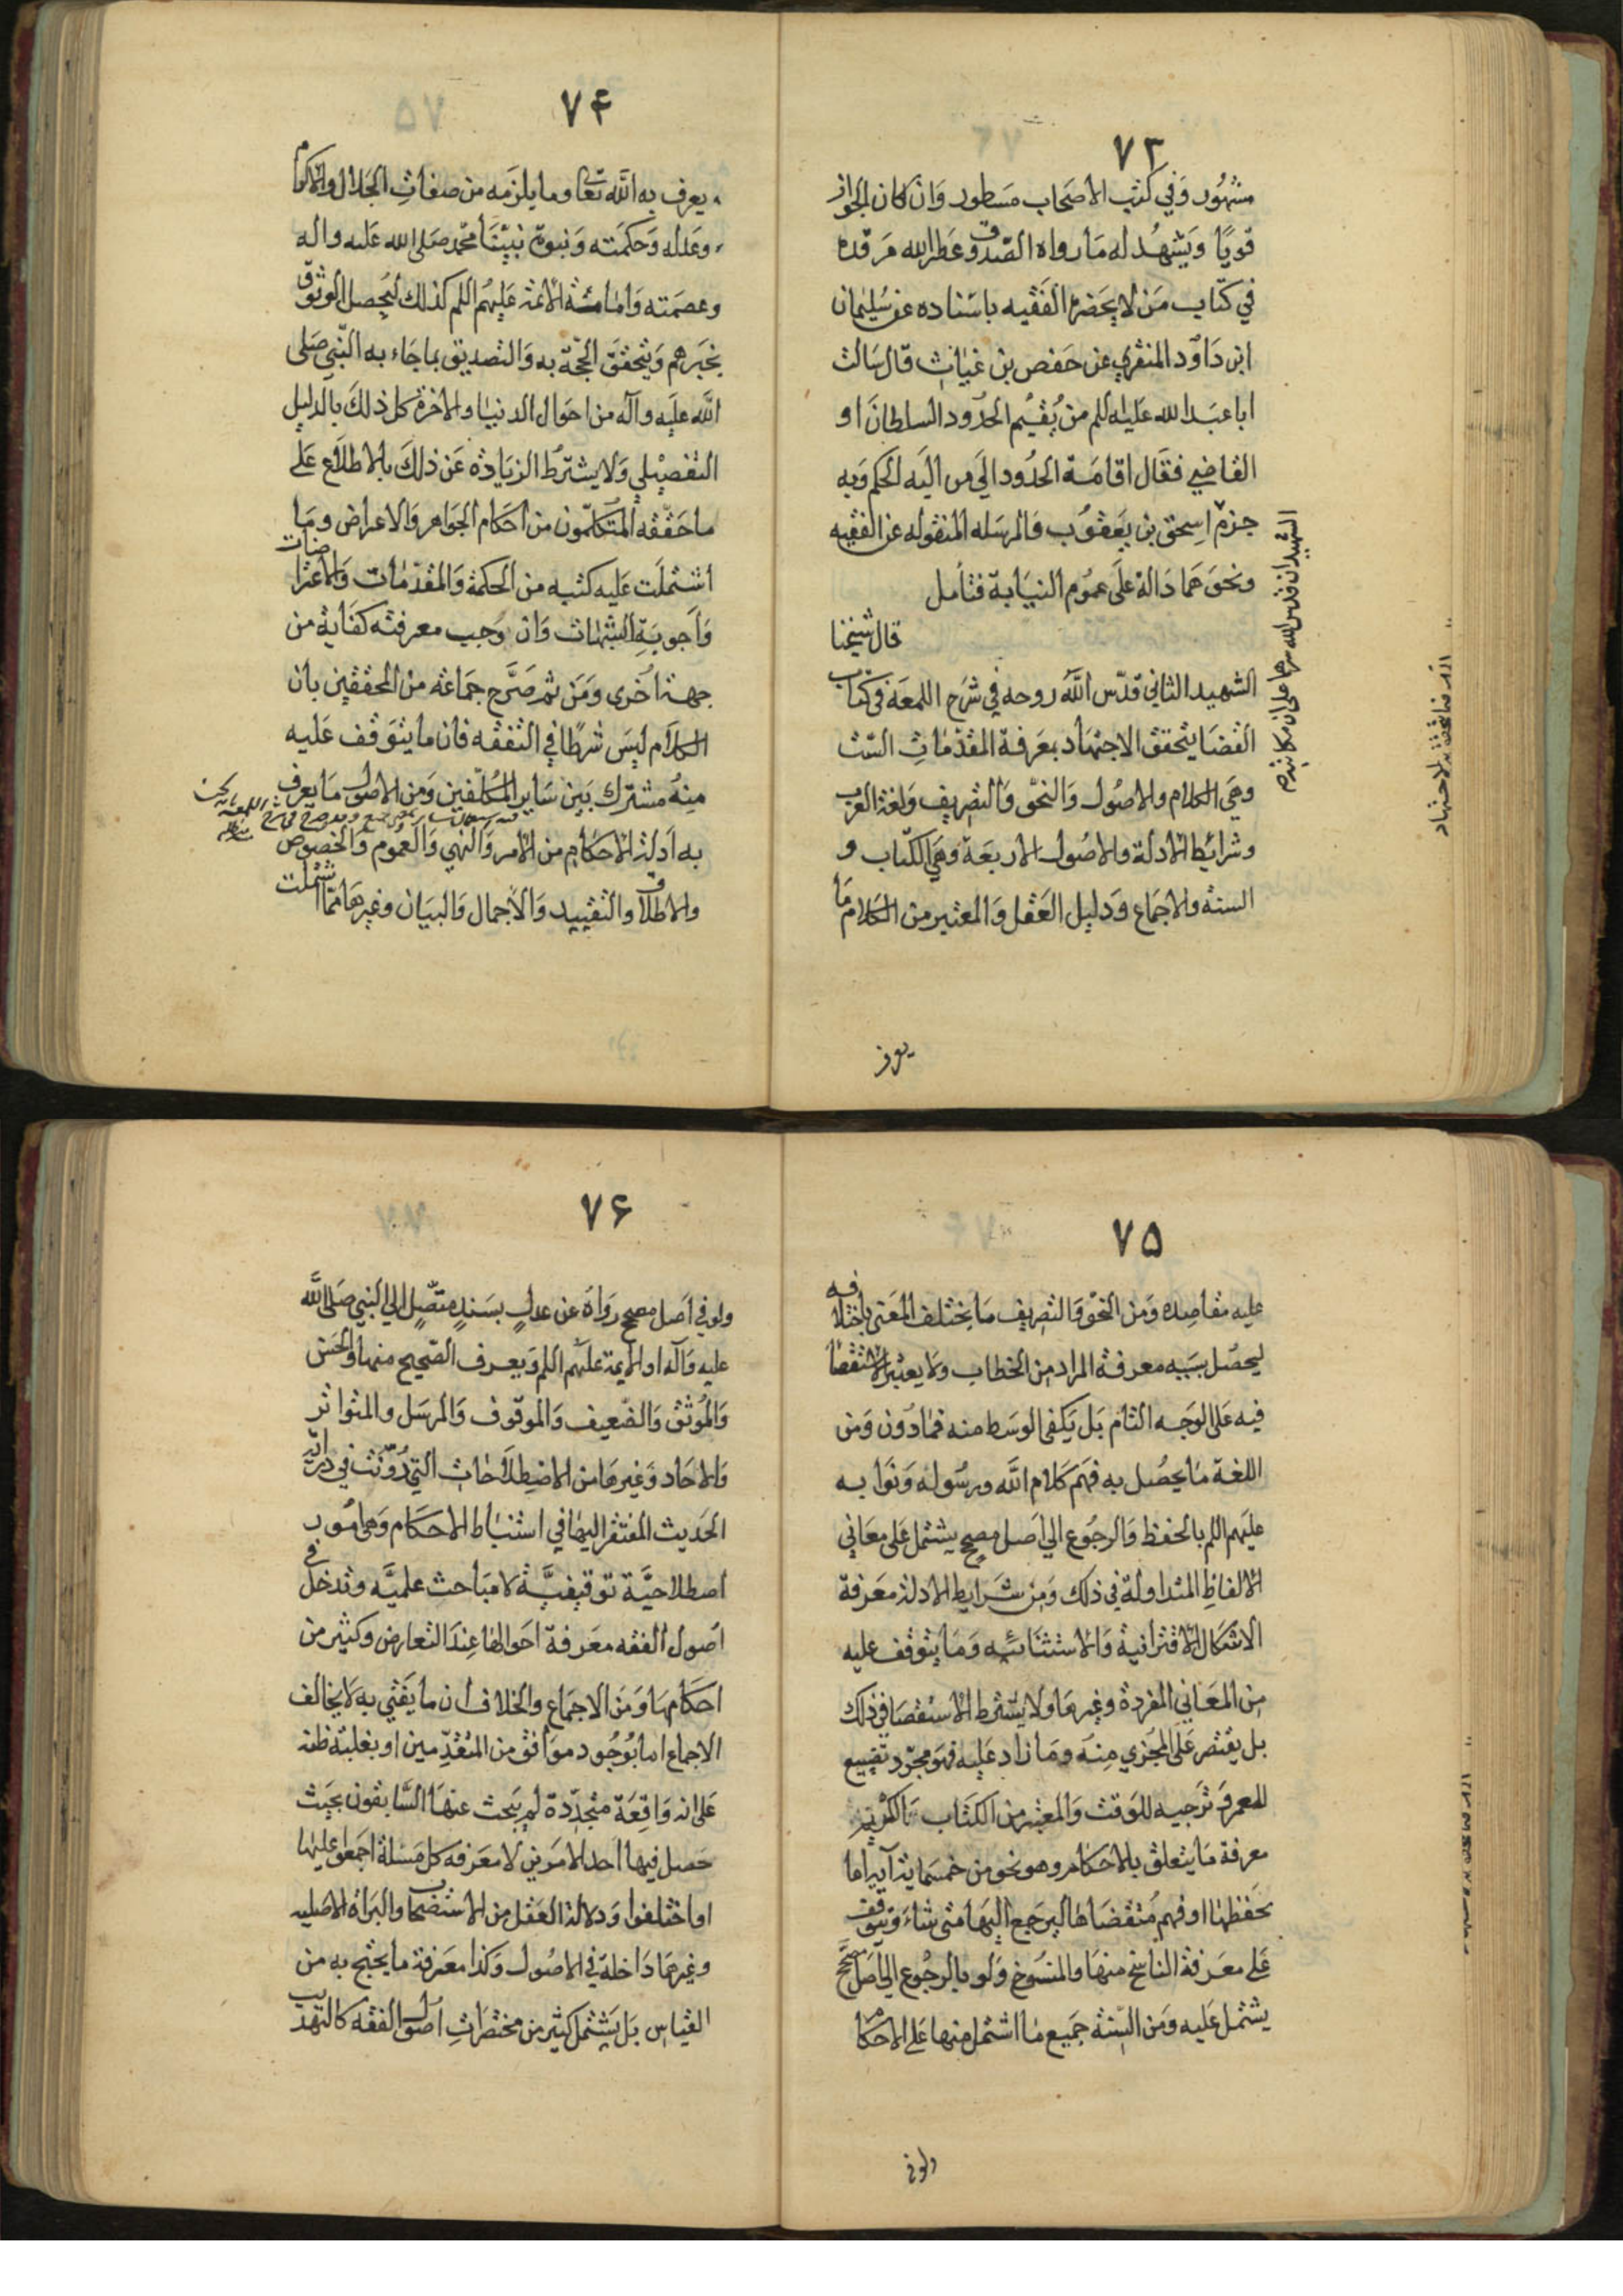 ۷۳
مشهور وفي كتب الاصحاب مسطور وان كان الجواز
قويا ويشهد له ما رواه الصدوق عطر الله مرقده
في كتاب من لا يحضره الفقيه باسناده عن سليمان
ابن داود المنقري عن حفص بن غياث قال سالت
ابا عبد الله عليه اللم من يقيم الحدود السلطان او
القاضي فقال اقامة الحدود الي من اليه الحكم وبه
جزم اسحق بن يعقوب والمرسله المنقوله عن الفقيه
ونحوهما دالة على عموم النيابة فتأمل
قال شيخنا
الشهيد الثاني قدس الله روحه في شرح اللمعة في كتاب
القضا يتحقق الاجتهاد بمعرفة المقدمات الست
وهي الكلام والاصول والنحو والتصريف ولغة العرب
وشرائط الادلة والاصول الاربعة وهي الكتاب و
السنة والاجماع ودليل العقل والمعتبر من الكلام ما
الشهيدان قدس الله
للاجتهاد
يعرف
۷۴
يعرف به الله تعا وما يلزمه من صفات الجلال والاكرام
وعدله وحكمته ونبوة نبينا محمد صلى الله عليه واله
وعصمته وامامة الائمة عليهم اللم كذلك ليحصل الوثوق
بخبرهم ويتحقق الحجة به والتصديق بما جاء به النبي صلى
الله عليه وآله من احوال الدنيا والاخرة كل ذلك بالدليل
التفصيلي ولا يشترط الزيادة عن ذلك بالاطلاع على
ما حققه المتكلمون من احكام الجواهر والاعراض وما
اشتملت عليه كتبه من الحكمة والمقدمات والاعتراضات
واجوبة الشبهات وان وجب معرفته كفاية من
جهة اخرى ومن ثم صرح جماعة من المحققين بان
الكلام ليس شرطا في التفقه فان ما يتوقف عليه
منه مشترك بين ساير المكلفين ومن الاصول ما يعرف
به ادلة الاحكام من الامر والنهي والعموم والخصوص
والاطلاق والتقييد والاجمال والبيان وغيرها مما اشتملت
۷۵
عليه مقاصده ومن النحو والتصريف ما يختلف المعنى باختلافه
ليحصل بسببه معرفة المراد من الخطاب ولا يعتبر الاستقصا
فيه على الوجه التام بل يكفي الوسط منه فما دون ومن
اللغة ما يحصل به فهم كلام الله ورسوله ونوابه
عليهم اللم بالحفظ والرجوع الي اصل مصحح يشتمل على معاني
الالفاظ المتداولة في ذلك ومن شرايط الادلة معرفة
الاشكال الاقترانية والاستثنائيه وما يتوقف عليه
من المعاني المفردة وغيرها ولا يشترط الاستقصا في ذلك
بل يقتصر على المجزي منه وما زاد عليه فهو مجرد تضييع
للعمر وترجيه للوقت والمعتبر من الكتاب الكريم
معرفة ما يتعلق بالاحكام وهو نحو من خمسماية آية اما
بحفظها او فهم مقتضاها ليرجع اليها متى شاء ويتوقف
على معرفة الناسخ منها والمنسوخ ولو بالرجوع الي اصل مصحح
يشتمل عليه ومن السنة جميع ما اشتمل منها على الاحكام
ولو في
۷۶
ولو في اصل مصحح رواه عن عدل بسند متصل الي النبي صلى الله
عليه وآله او الايمة عليهم اللم ويعرف الصحيح منها والحسن
والموثق والضعيف والموقوف والمرسل والمتواتر
والاحاد وغيرها من الاصطلاحات التي دونت في دراية
الحديث المفتقر اليها في استنباط الاحكام وهي امور
اصطلاحية توقيفية لا مباحث علمية وتدخل في
اصول الفقه معرفة احوالها عند التعارض وكثير من
احكامها ومن الاجماع والخلاف ان ما يفتي به لا يخالف
الاجماع اما بوجود موافق من المتقدمين او بغلبة ظنه
على انه واقعة متجددة لم يبحث عنها السابقون بحيث
حصل فيها احد الامرين لا معرفة كل مسئلة اجمعوا عليها
او اختلفوا ودلالة العقل من الاستصحاب والبراة الاصلية
وغيرهما داخلة في الاصول وكذا معرفة ما يحتج به من
القياس بل يشتمل كثير من مختصرات اصول الفقه كالتهذيب